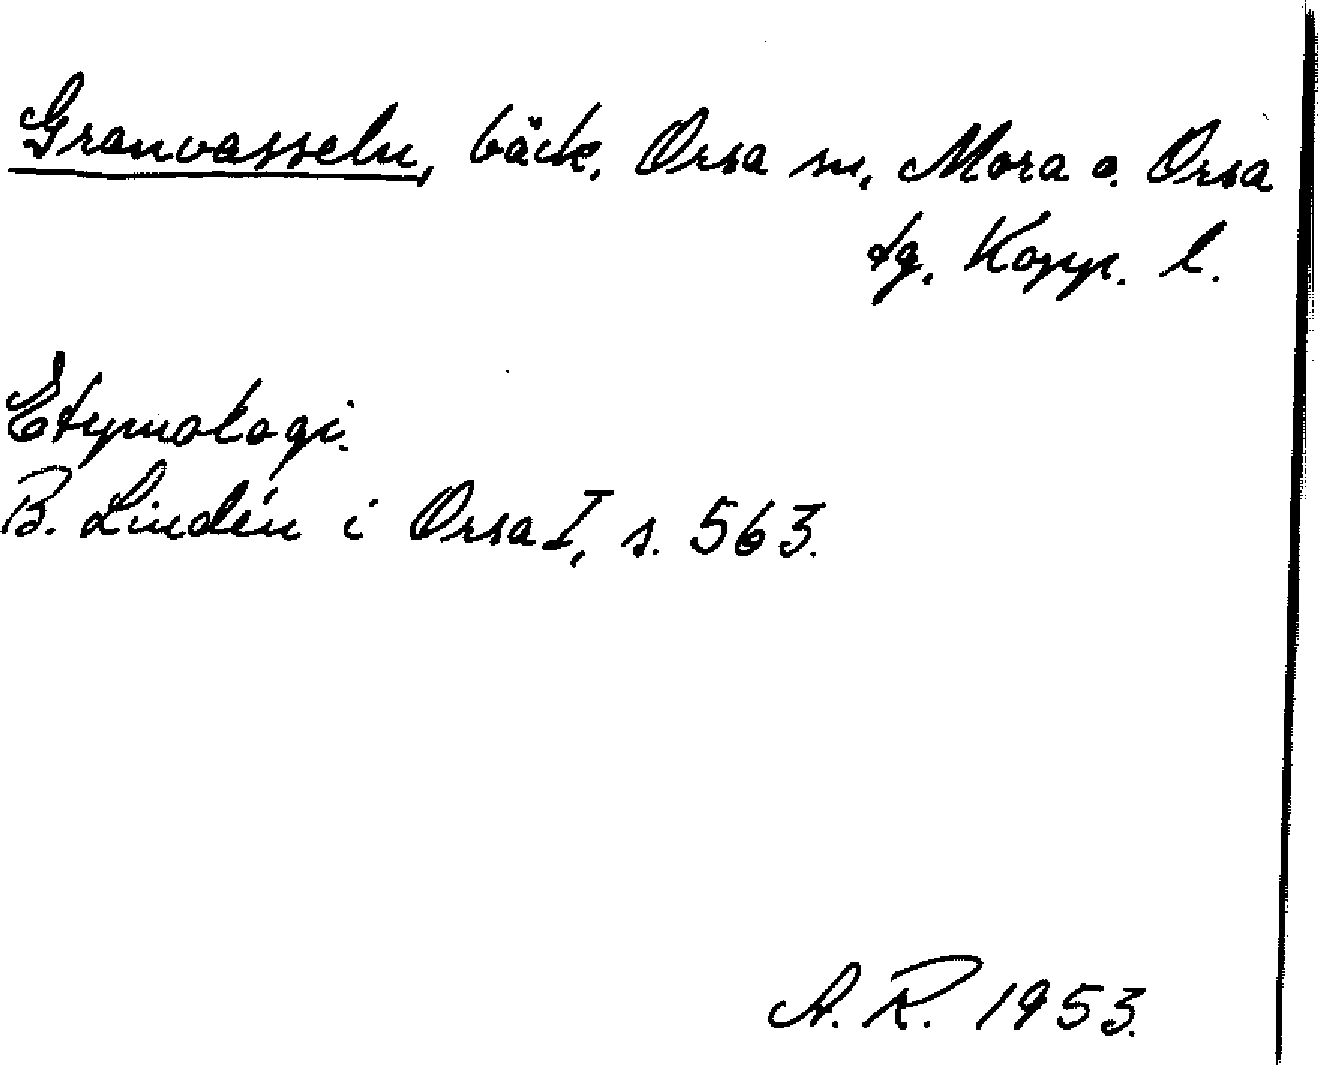 Granvasseln, bäck, Orsa sn, Mora o. Orsa
tg, Kopp. l.
Etymologi.
B. Lindén i Orsa I, s. 563.
A. R. 1953.